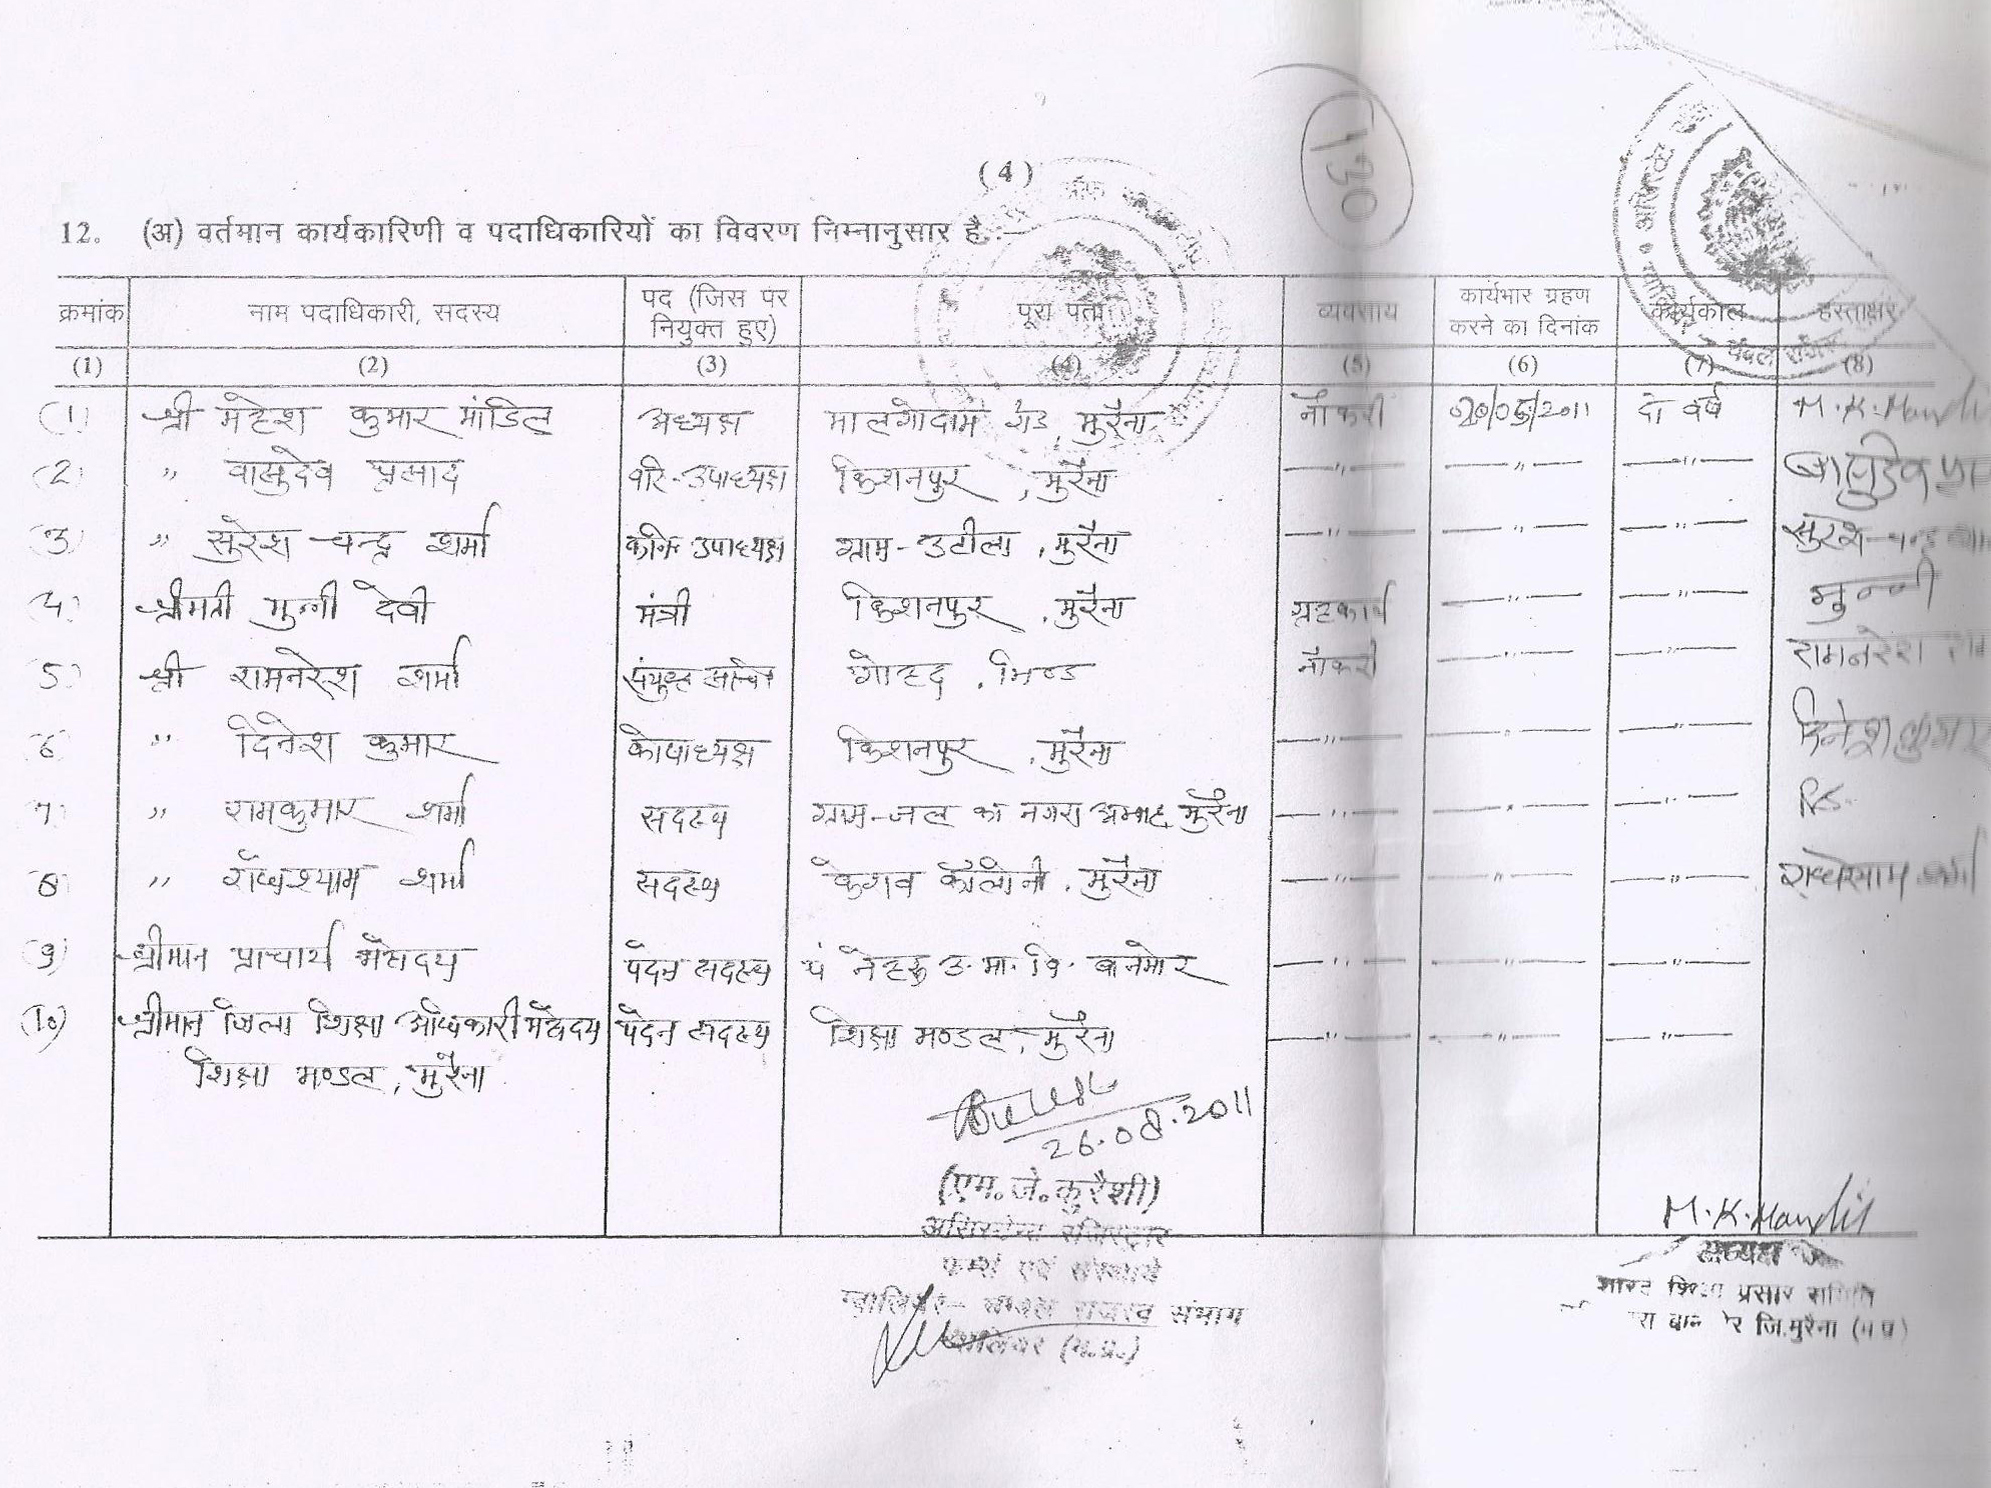 130
( 4 )
12. (अ) वर्तमान कार्यकारिणी व पदाधिकारियों का विवरण निम्नानुसार है :-
क्रमांक नाम पदाधिकारी, सदस्य पद (जिस पर नियुक्त हुए) पूरा पता व्यवसाय कार्यभार ग्रहण करने का दिनांक कार्यकाल हस्ताक्षर
(1) (2) (3) (4) (5) (6) (7) (8)
(1) श्री महेश कुमार मांडिल अध्यक्ष मालगोदाम रोड, मुरैना नौकरी दो वर्ष M.K.Mandil
(2) " वासुदेव प्रसाद वरि-उपाध्यक्ष किशनपुर, मुरैना —"— —"— —"— वासुदेव
(3) " सुरेश चन्द्र शर्मा कनि-उपाध्यक्ष ग्राम-उटीला, मुरैना —"— —"— —"— सुरेश चन्द्र
(4) श्रीमती मुन्नी देवी मंत्री किशनपुर, मुरैना ग्रहकार्य —"— —"— मुन्नी
(5) श्री रामनरेश शर्मा संयुक्त सचिव गोहद, भिण्ड नौकरी —"— —"— रामनरेश
6 " दिनेश कुमार कोषाध्यक्ष किशनपुर, मुरैना —"— —"— —"— दिनेश कुमार
7 " रामकुमार शर्मा सदस्य ग्राम-जल का नगरा अम्बाह मुरैना —"— —"— —"—
8 " राधेश्याम शर्मा सदस्य केशव कॉलोनी, मुरैना —"— —"— —"— राधेश्याम शर्मा
(9) श्रीमान प्राचार्य महोदय पदेन सदस्य पं नेहरू उ.मा.वि. बानमोर —"— —"— —"—
(10) श्रीमान जिला शिक्षा अधिकारी महोदय पदेन सदस्य शिक्षा मण्डल, मुरैना —"— —"— —"—
शिक्षा मण्डल, मुरैना
26.08.2011
(एम.जे.कुरैशी)
असिस्टेन्ट रजिस्ट्रार
फर्म्स एवं संस्थायें
ग्वालियर- चम्बल राजस्व संभाग
ग्वालियर (म.प्र.)
M.K.Mandil
अध्यक्ष
भारत शिक्षा प्रसार समिति
जि.मुरैना (म प्र)